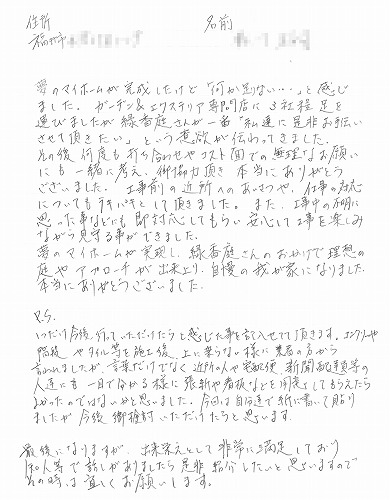 住所
名前
福井市
夢のマイホームが完成したけど「何か足りない…」と感じ
ました。ガーデン&エクステリア専門店に3社程足を
運びましたが緑香庭さんが一番「私達に是非お手伝い
させて頂きたい」という意欲が伝わってきました。
その後何度も打ち合わせやコスト面での無理なお願い
にも一緒に考え、御協力頂き本当にありがとう
ございました。工事前の近所へのあいさつや、仕事の対応
についてもテキパキとして頂きました。また、工事中の不明に
思った事などにも即対応してもらい安心して工事を楽しみ
ながら見守る事ができました。
夢のマイホームが実現し、緑香庭さんのおかげで理想の
庭やアプローチが出来上り、自慢の我が家になりました。
本当にありがとうございました。
P.S.
1つだけ今後、行っていただけたらと感じた事を記入させて頂きます。エントリーや
階段やタイル等を施工後、上に乗らない様に業者の方から
言われましたが、言葉だけでなく近所の人や宅配便、新聞配達等の
人達にも一目で分かる様に張紙や看板などを用意してもらえたら
よかったのではないかと思いました。今回は自分達で紙に書いて貼り
ましたが今後御検討いただけたらと思います。
最後になりますが、出来栄えとして非常に満足しており
知人等で話しがありましたら是非紹介したいと思いますので
その時は宜しくお願いします。